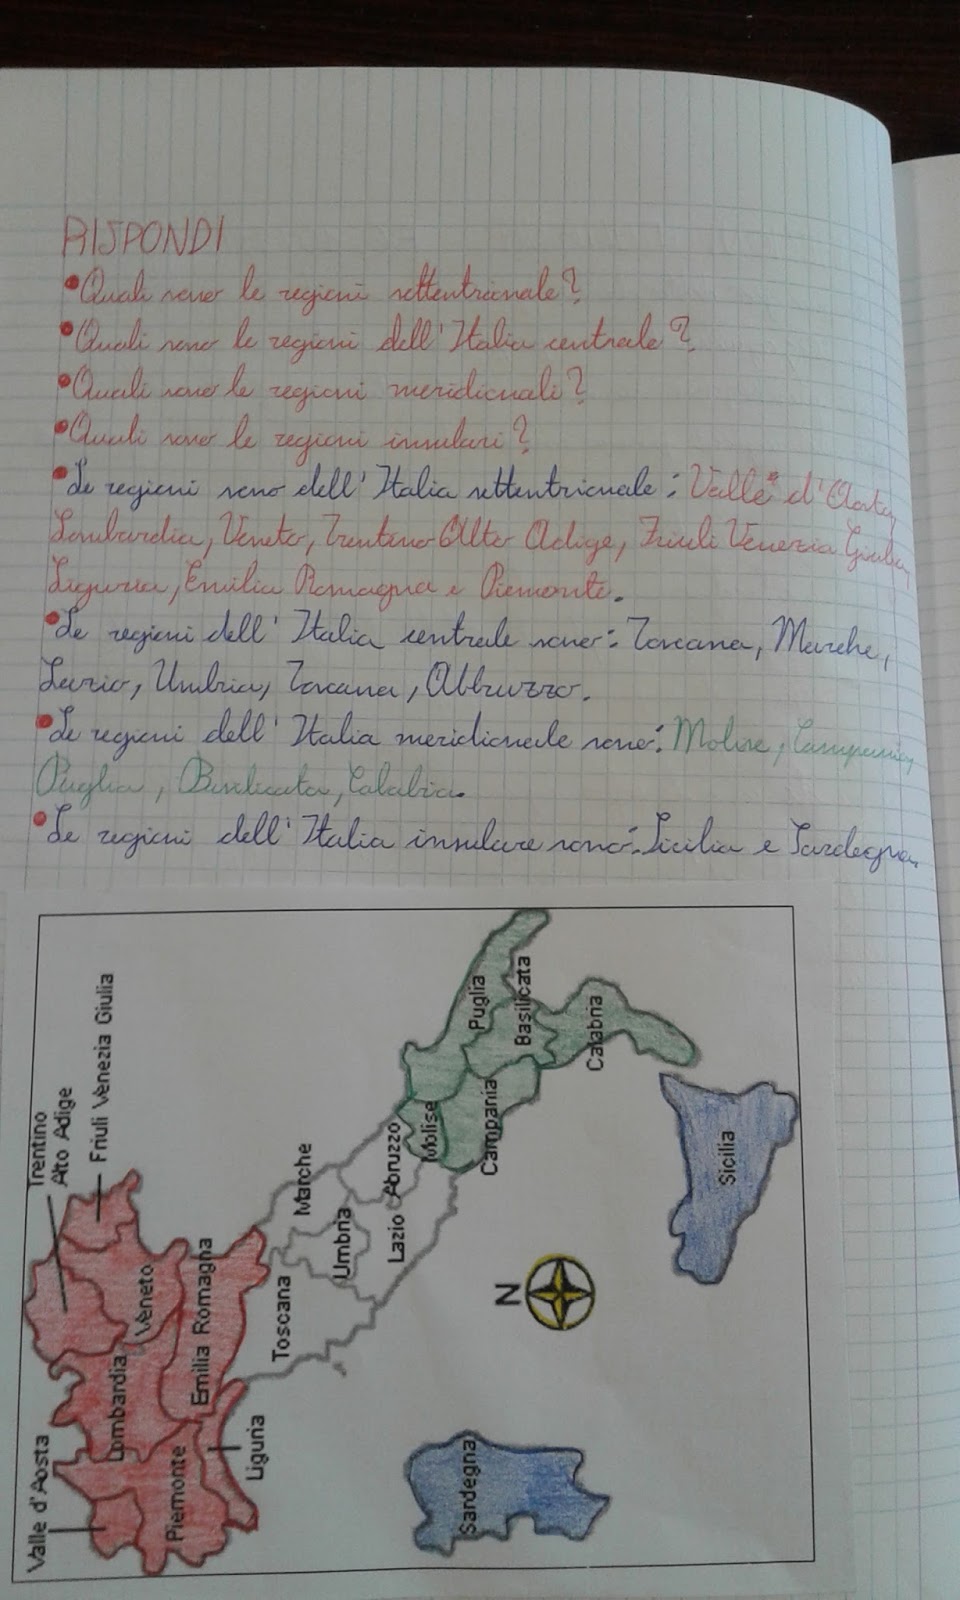 RISPONDI
• Quali sono le regioni settentrionale?
• Quali sono le regioni dell'Italia centrale?
• Quali sono le regioni meridionali?
• Quali sono le regioni insulari?
• Le regioni sono dell'Italia settentrionale: Valle d'Aosta,
Lombardia, Veneto, Trentino Alto Adige, Friuli Venezia Giulia,
Liguria, Emilia Romagna e Piemonte.
• Le regioni dell'Italia centrale sono: Toscana, Marche,
Lazio, Umbria, Toscana, Abbruzzo.
• Le regioni dell'Italia meridionale sono: Molise, Campania,
Puglia, Basilicata, Calabria.
• Le regioni dell'Italia insulare sono: Sicilia e Sardegna.
Valle d'Aosta
Trentino
Alto Adige
Friuli Venezia Giulia
Lombardia
Veneto
Piemonte
Emilia Romagna
Liguria
Toscana
Marche
Umbria
Lazio
Abruzzo
Molise
Campania
Puglia
Basilicata
Calabria
Sardegna
N
Sicilia